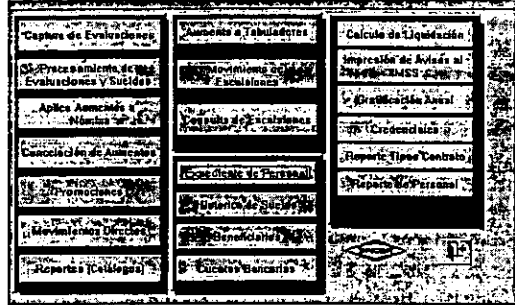 Captura de Evaluaciones
Procesamiento de
Evaluaciones y Sueldos
Aplica Aumentos a
Nómina
Cancelación de Aumentos
Promociones
Movimientos Directos
Reportes (Catálogos)
Aumento a Tabuladores
Movimiento de
Escalaciones
Consulta de Escalaciones
Expediente de Personal
Historico de Sueldos
Beneficiarios
Cuentas Bancarias
Calculo de Liquidación
Impresión de Avisos al
IMSS
Gratificación Anual
Credenciales
Reporte Tipos Contrato
Reporte de Personal